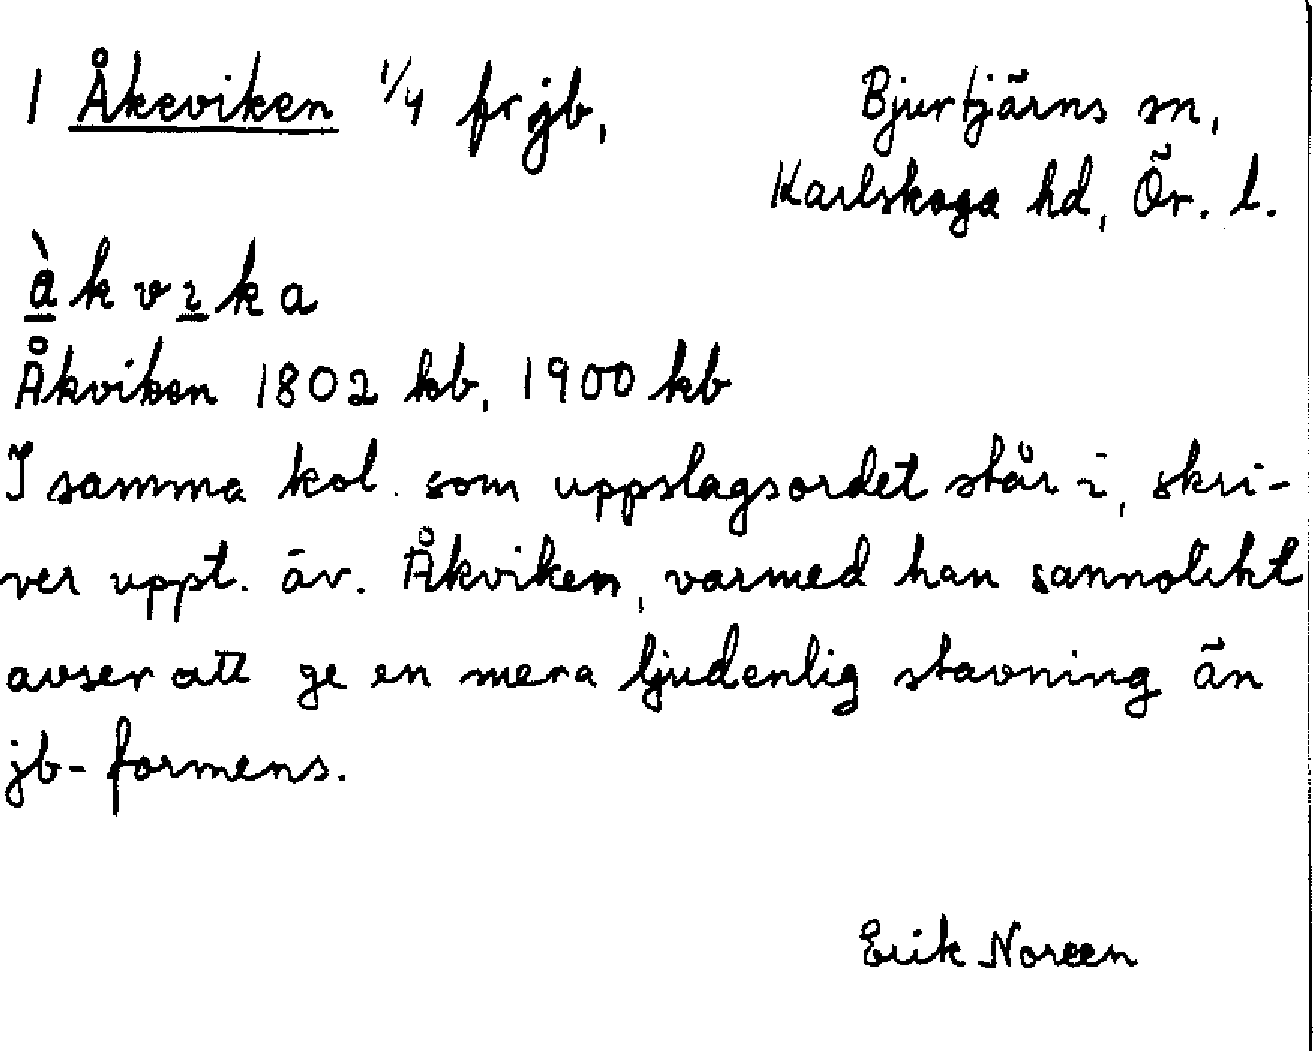 1 Åkeviken 1/4 fr jb,
Bjurtjärns sn,
Karlskoga hd, Ör. l.
àkvıka
Åkviken 1802 kb, 1900 kb
I samma kol. som uppslagsordet står i, skri-
ver uppt. äv. Åkviken, varmed han sannolikt
avser att ge en mera ljudenlig stavning än
jb-formens.
Erik Noreen